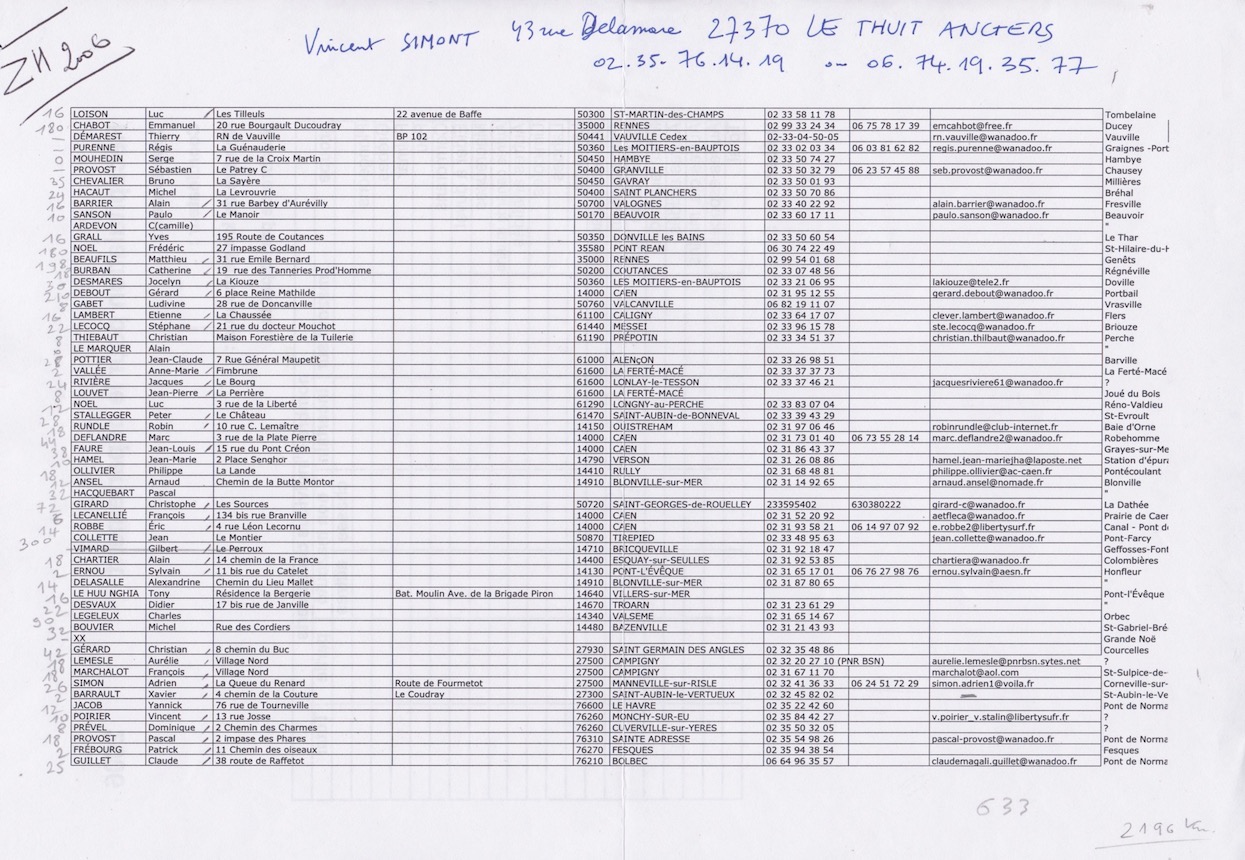 ZH 206
Vincent SIMONT 43 rue Delamare 27370 LE THUIT ANGERS
02.35.76.14.19 ou 06.74.19.35.77
16 LOISON Luc Les Tilleuls 22 avenue de Baffe 50300 ST-MARTIN-des-CHAMPS 02 33 58 11 78 Tombelaine
180 CHABOT Emmanuel 20 rue Bourgault Ducoudray 35000 RENNES 02 99 33 24 34 06 75 78 17 39 emcahbot@free.fr Ducey
— DÉMAREST Thierry RN de Vauville BP 102 50441 VAUVILLE Cedex 02-33-04-50-05 rn.vauville@wanadoo.fr Vauville
— PURENNE Régis La Guénauderie 50360 Les MOITIERS-en-BAUPTOIS 02 33 02 03 34 06 03 81 62 82 regis.purenne@wanadoo.fr Graignes -Port
0 MOUHEDIN Serge 7 rue de la Croix Martin 50450 HAMBYE 02 33 50 74 27 Hambye
— PROVOST Sébastien Le Patrey C 50400 GRANVILLE 02 33 50 32 79 06 23 57 45 88 seb.provost@wanadoo.fr Chausey
35 CHEVALIER Bruno La Sayère 50450 GAVRAY 02 33 50 01 93 Millières
24 HACAUT Michel La Levrouvrie 50400 SAINT PLANCHERS 02 33 50 70 86 Bréhal
16 BARRIER Alain 31 rue Barbey d'Aurévilly 50700 VALOGNES 02 33 40 22 92 alain.barrier@wanadoo.fr Fresville
10 SANSON Paulo Le Manoir 50170 BEAUVOIR 02 33 60 17 11 paulo.sanson@wanadoo.fr Beauvoir
ARDEVON C(camille) "
16 GRALL Yves 195 Route de Coutances 50350 DONVILLE les BAINS 02 33 50 60 54 Le Thar
180 NOEL Frédéric 27 impasse Godland 35580 PONT REAN 06 30 74 22 49 St-Hilaire-du-H
198 BEAUFILS Matthieu 31 rue Emile Bernard 35000 RENNES 02 99 54 01 68 Genêts
18 BURBAN Catherine 19 rue des Tanneries Prod'Homme 50200 COUTANCES 02 33 07 48 56 Régnéville
30 DESMARES Jocelyn La Kiouze 50360 LES MOITIERS-en-BAUPTOIS 02 33 21 06 95 lakiouze@tele2.fr Doville
210 DEBOUT Gérard 6 place Reine Mathilde 14000 CAEN 02 31 95 12 55 gerard.debout@wanadoo.fr Portbail
8 GABET Ludivine 28 rue de Doncanville 50760 VALCANVILLE 06 82 19 11 07 Vrasville
16 LAMBERT Etienne La Chaussée 61100 CALIGNY 02 33 64 17 07 clever.lambert@wanadoo.fr Flers
22 LECOCQ Stéphane 21 rue du docteur Mouchot 61440 MESSEI 02 33 96 15 78 ste.lecocq@wanadoo.fr Briouze
8 THIEBAUT Christian Maison Forestière de la Tuilerie 61190 PRÉPOTIN 02 33 34 51 37 christian.thilbaut@wanadoo.fr Perche
LE MARQUER Alain "
28 POTTIER Jean-Claude 7 Rue Général Maupetit 61000 ALENçON 02 33 26 98 51 Barville
2 VALLÉE Anne-Marie Fimbrune 61600 LA FERTÉ-MACÉ 02 33 37 37 73 La Ferté-Macé
24 RIVIÈRE Jacques Le Bourg 61600 LONLAY-le-TESSON 02 33 37 46 21 jacquesriviere61@wanadoo.fr ?
8 LOUVET Jean-Pierre La Perrière 61600 LA FERTÉ-MACÉ Joué du Bois
12 NOEL Luc 3 rue de la Liberté 61290 LONGNY-au-PERCHE 02 33 83 07 04 Réno-Valdieu
28 STALLEGGER Peter Le Château 61470 SAINT-AUBIN-de-BONNEVAL 02 33 39 43 29 St-Evroult
18 RUNDLE Robin 10 rue C. Lemaître 14150 OUISTREHAM 02 31 97 06 46 robinrundle@club-internet.fr Baie d'Orne
44 DEFLANDRE Marc 3 rue de la Plate Pierre 14000 CAEN 02 31 73 01 40 06 73 55 28 14 marc.deflandre2@wanadoo.fr Robehomme
38 FAURE Jean-Louis 15 rue du Pont Créon 14000 CAEN 02 31 86 43 37 Grayes-sur-Me
10 HAMEL Jean-Marie 2 Place Senghor 14790 VERSON 02 31 26 08 86 hamel.jean-mariejha@laposte.net Station d'épura
18 OLLIVIER Philippe La Lande 14410 RULLY 02 31 68 48 81 philippe.ollivier@ac-caen.fr Pontécoulant
12 ANSEL Arnaud Chemin de la Butte Montor 14910 BLONVILLE-sur-MER 02 31 14 92 65 arnaud.ansel@nomade.fr Blonville
32 HACQUEBART Pascal "
72 GIRARD Christophe Les Sources 50720 SAINT-GEORGES-de-ROUELLEY 233595402 630380222 girard-c@wanadoo.fr La Dathée
6 LECANELLIÉ François 134 bis rue Branville 14000 CAEN 02 31 52 20 92 aetfleca@wanadoo.fr Prairie de Caen
14 ROBBE Éric 4 rue Léon Lecornu 14000 CAEN 02 31 93 58 21 06 14 97 07 92 e.robbe2@libertysurf.fr Canal - Pont d
300 COLLETTE Jean Le Montier 50870 TIREPIED 02 33 48 95 63 jean.collette@wanadoo.fr Pont-Farcy
VIMARD Gilbert Le Perroux 14710 BRICQUEVILLE 02 31 92 18 47 Geffosses-Font
18 CHARTIER Alain 14 chemin de la France 14400 ESQUAY-sur-SEULLES 02 31 92 53 85 chartiera@wanadoo.fr Colombières
2 ERNOU Sylvain 11 bis rue du Catelet 14130 PONT-L'ÉVÊQUE 02 31 65 17 01 06 76 27 98 76 ernou.sylvain@aesn.fr Honfleur
14 DELASALLE Alexandrine Chemin du Lieu Mallet 14910 BLONVILLE-sur-MER 02 31 87 80 65 "
16 LE HUU NGHIA Tony Résidence la Bergerie Bat. Moulin Ave. de la Brigade Piron 14640 VILLERS-sur-MER Pont-l'Évêque
22 DESVAUX Didier 17 bis rue de Janville 14670 TROARN 02 31 23 61 29 "
90 LEGELEUX Charles 14340 VALSEME 02 31 65 14 67 Orbec
32 BOUVIER Michel Rue des Cordiers 14480 BAZENVILLE 02 31 21 43 93 St-Gabriel-Bré
XX Grande Noë
42 GÉRARD Christian 8 chemin du Buc 27930 SAINT GERMAIN DES ANGLES 02 32 35 48 86 Courcelles
18 LEMESLE Aurélie Village Nord 27500 CAMPIGNY 02 32 20 27 10 (PNR BSN) aurelie.lemesle@pnrbsn.sytes.net ?
18 MARCHALOT François Village Nord 27500 CAMPIGNY 02 31 67 11 70 marchalot@aol.com St-Sulpice-de-
26 SIMON Adrien La Queue du Renard Route de Fourmetot 27500 MANNEVILLE-sur-RISLE 02 32 41 36 33 06 24 51 72 29 simon.adrien1@voila.fr Corneville-sur-
2 BARRAULT Xavier 4 chemin de la Couture Le Coudray 27300 SAINT-AUBIN-le-VERTUEUX 02 32 45 82 02 St-Aubin-le-Ve
12 JACOB Yannick 76 rue de Tourneville 76600 LE HAVRE 02 35 22 42 60 Pont de Norma
10 POIRIER Vincent 13 rue Josse 76260 MONCHY-SUR-EU 02 35 84 42 27 v.poirier_v.stalin@libertysufr.fr ?
8 PRÉVEL Dominique 2 Chemin des Charmes 76260 CUVERVILLE-sur-YERES 02 35 50 32 05 ?
18 PROVOST Pascal 2 impase des Phares 76310 SAINTE ADRESSE 02 35 54 98 26 pascal-provost@wanadoo.fr Pont de Norma
2 FRÉBOURG Patrick 11 Chemin des oiseaux 76270 FESQUES 02 35 94 38 54 Fesques
25 GUILLET Claude 38 route de Raffetot 76210 BOLBEC 06 64 96 35 57 claudemagali.guillet@wanadoo.fr Pont de Norma
633
2196 Km.